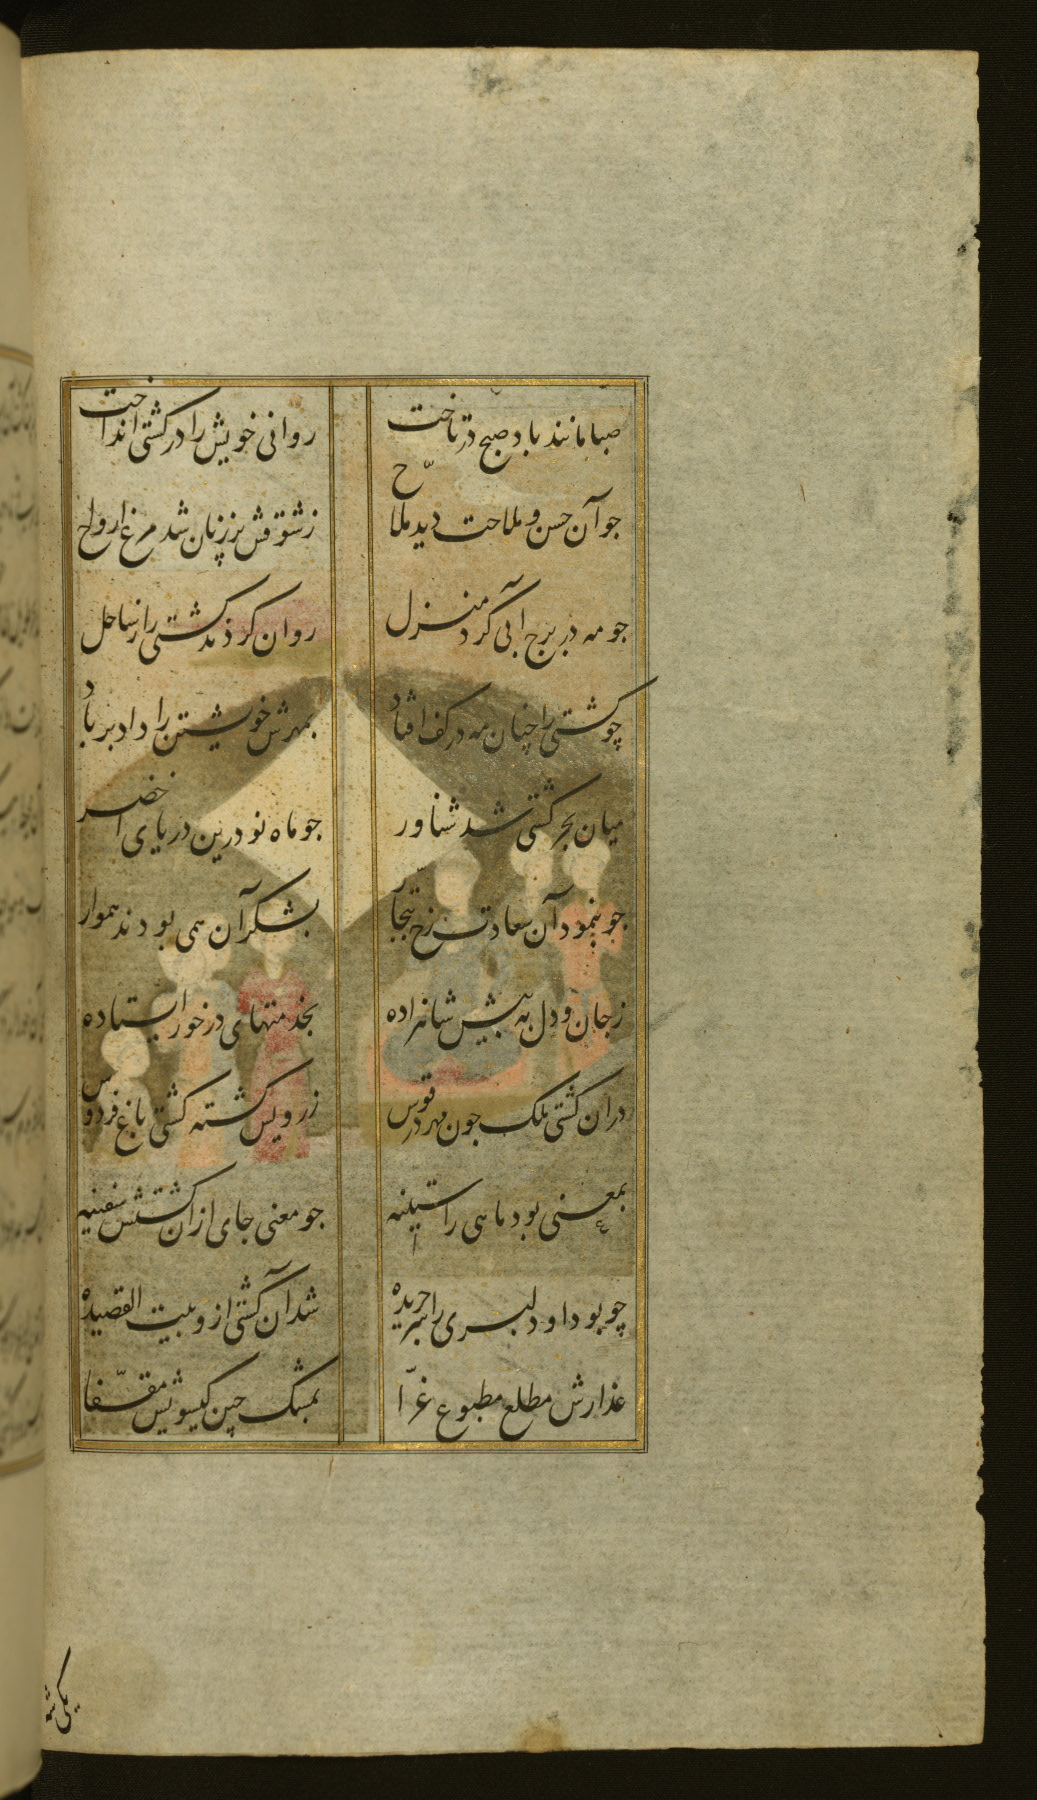 صبا مانند باد صبح در تاخت
روانی خویش را در کشتی انداخت
جو آن حسن و ملاحت دید ملاح
ز شوقش بر زنان شد مرغ ارواح
جو مه در برج آبی کرد منزل
روان کردند کشتی را ز ساحل
چو کشتی را چنان مه در کف افتاد
بمهرش خویشتن را داد بر باد
میان بحر کشتی شد شناور
جو ماه نو درین دریای اخضر
جو بنمود آن سعادت رخ بتجار
بشکر آن همی بودند هموار
ز جان و دل به پیش شاهزاده
بخدمتهای در خور ایستاده
در آن کشتی ملک جون مهر در قوس
ز رویش کشته کشتی باغ فردوس
بمعنی بود ماهی راستینه
جو معنی جای از آن کشتش سفینه
چو بود او دلبری را سر جریده
شد آن کشتی ازو بیت القصیده
عذارش مطلع مطبوع غرّا
بمشک چین کیسویش مقفّا
یکی شه